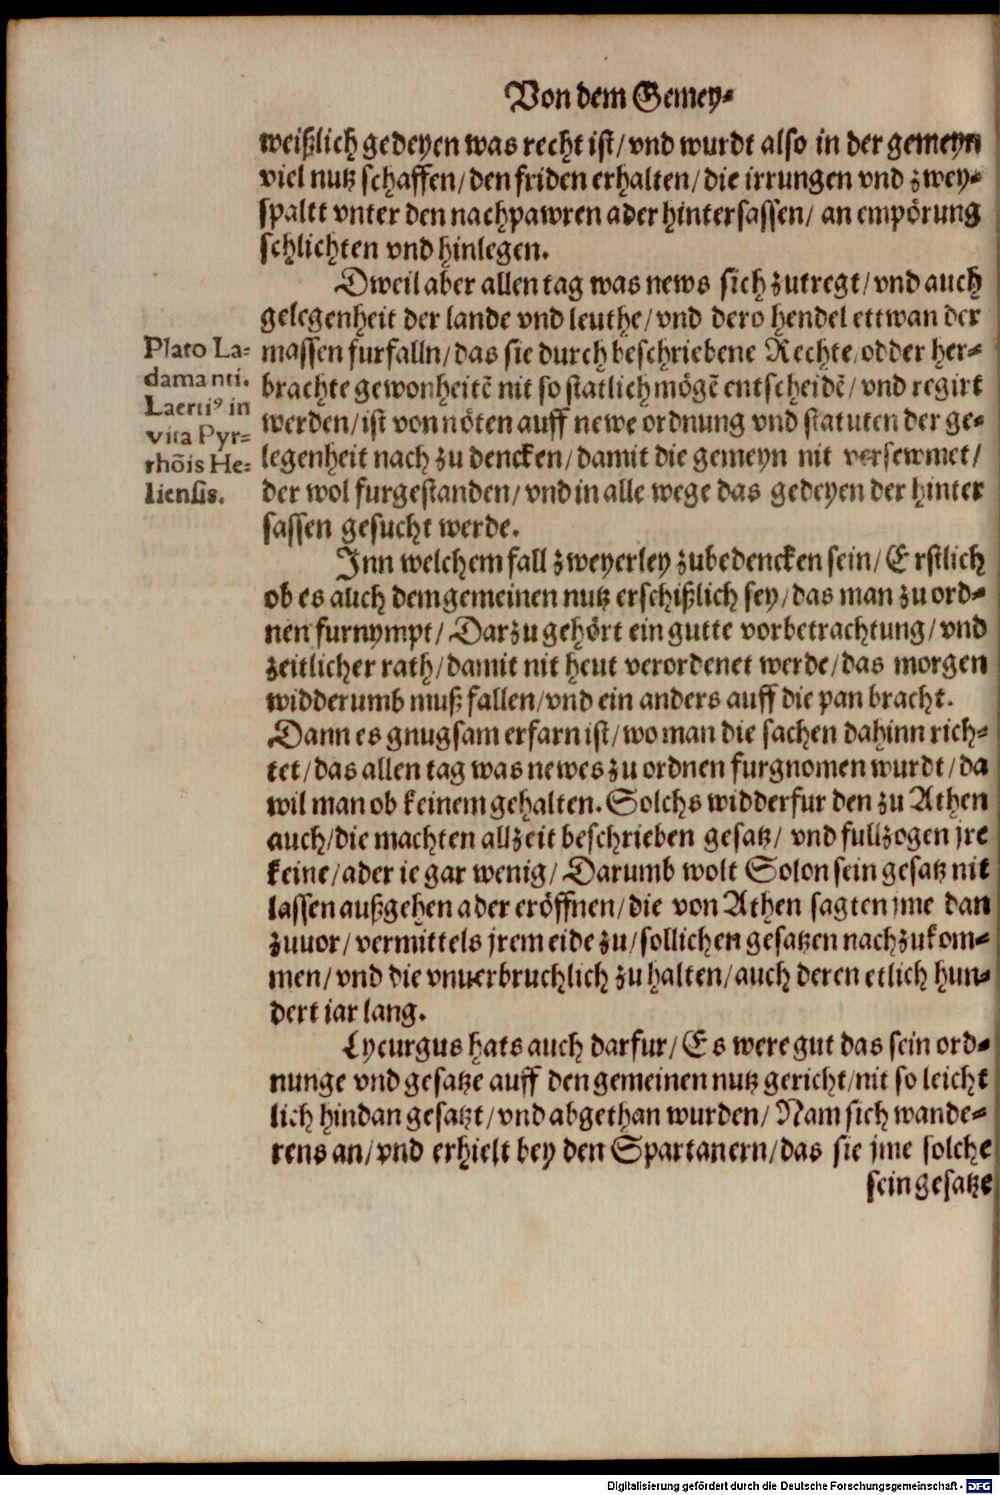 Von dem Gemey⸗
weißlich gedeyen was recht ist/ vnd wurdt also in der gemeyn
viel nutz schaffen/ den friden erhalten/ die irrungen vnd zwey⸗
spaltt vnter den nachpawren ader hintersassen/ an empörung
schlichten vnd hinlegen.
Dweil aber allen tag was news sich zutregt/ vnd auch
gelegenheit der lande vnd leuthe/ vnd dero hendel ettwan der
massen furfalln/ das sie durch beschriebene Rechte/ odder her⸗
brachte gewonheitē nit so statlich mögē entscheidē/ vnd regirt
werden/ ist von nöten auff newe ordnung vnd statuten der ge⸗
legenheit nach zu dencken/ damit die gemeyn nit versewmet/
der wol furgestanden/ vnd in alle wege das gedeyen der hinter
sassen gesucht werde.
Plato La⸗
damanti.
Laertiꝰ in
vita Pyr⸗
rhōis He⸗
liensis.
Inn welchem fall zweyerley zubedencken sein/ Erstlich
ob es auch dem gemeinen nutz erschißlich sey/ das man zu ord⸗
nen furnympt/ Darzu gehört ein gutte vorbetrachtung/ vnd
zeitlicher rath/ damit nit heut verordenet werde/ das morgen
widderumb muß fallen/ vnd ein anders auff die pan bracht.
Dann es gnugsam erfarn ist/ wo man die sachen dahinn rich⸗
tet/ das allen tag was newes zu ordnen furgnomen wurdt/ da
wil man ob keinem gehalten. Solchs widderfur den zu Athen
auch/ die machten allzeit beschrieben gesatz/ vnd fullzogen jre
keine/ ader ie gar wenig/ Darumb wolt Solon sein gesatz nit
lassen außgehen ader eröffnen/ die von Athen sagten jme dan
zuuor/ vermittels jrem eide zu/ sollichen gesatzen nachzukom⸗
men/ vnd die vnuerbruchlich zu halten/ auch deren etlich hun⸗
dert iar lang.
Lycurgus hats auch darfur/ Es were gut das sein ord⸗
nunge vnd gesatze auff den gemeinen nutz gericht/ nit so leicht
lich hindan gesatzt/ vnd abgethan wurden/ Nam sich wande⸗
rens an/ vnd erhielt bey den Spartanern/ das sie jme solche
sein gesatze
Digitalisierung gefördert durch die Deutsche Forschungsgemeinschaft - DFG